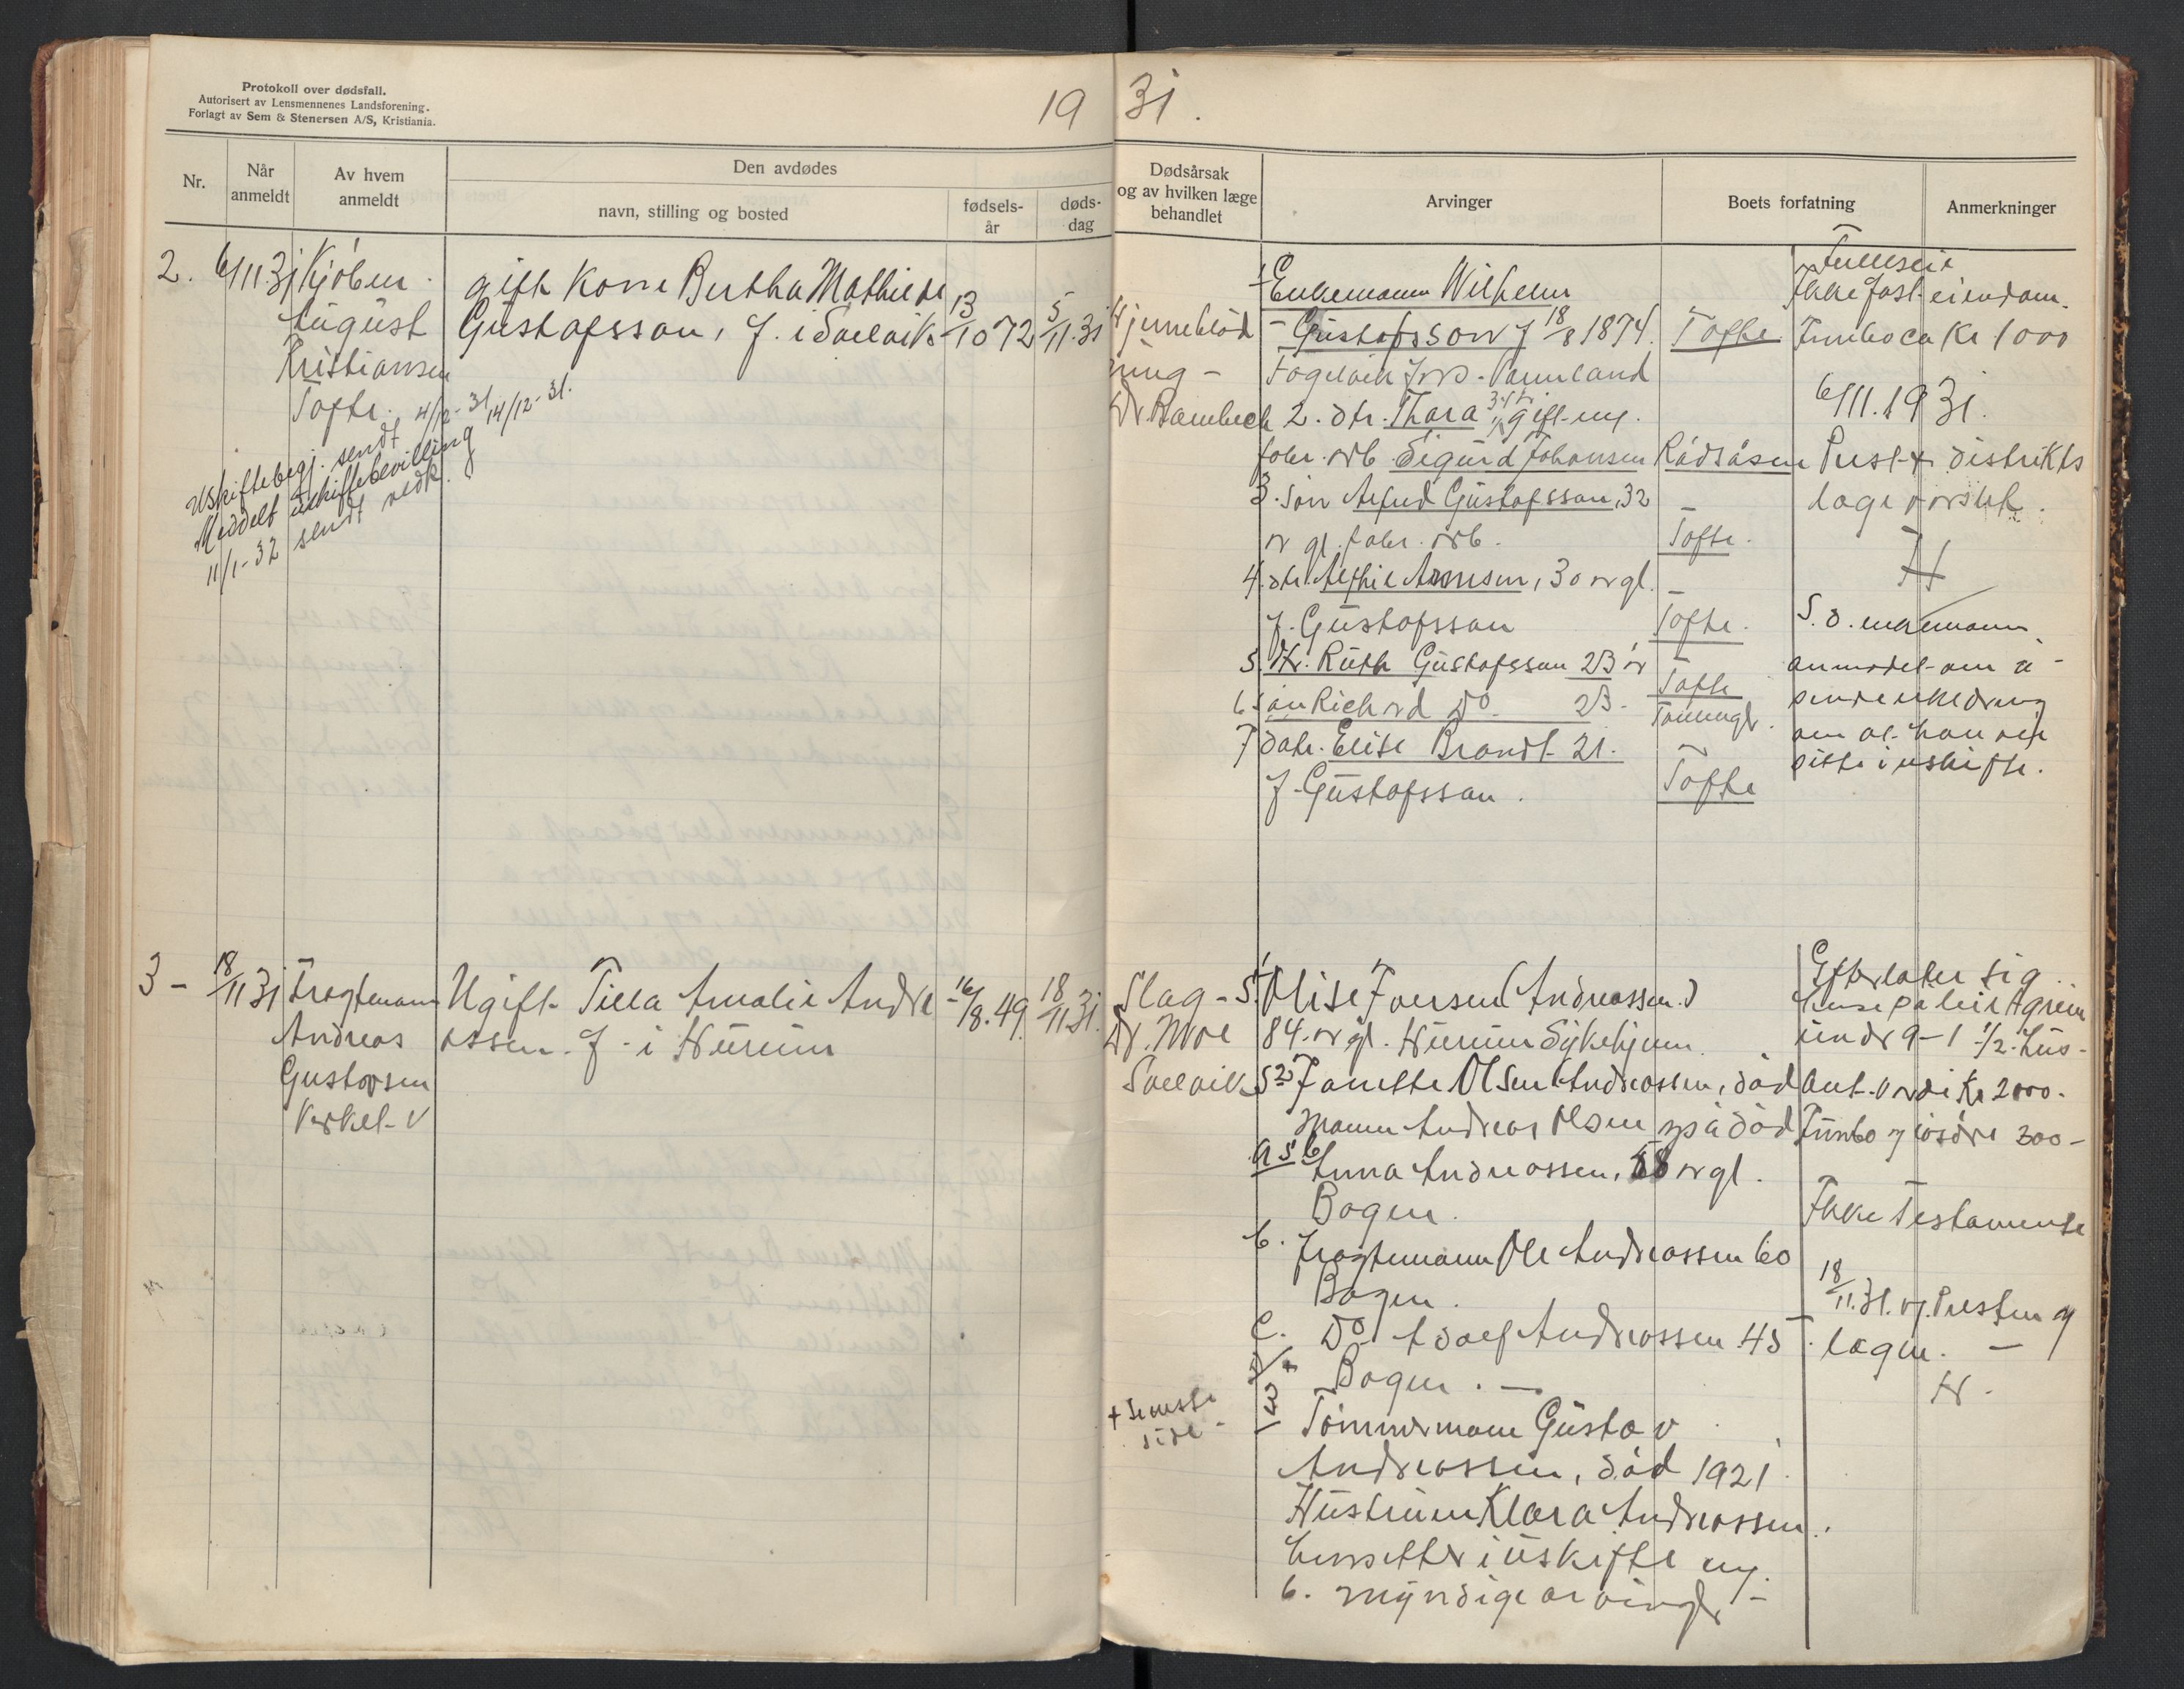 Protokoll over dødsfall.
Autorisert av Lensmennenes Landsforening.
Forlagt av Sem & Stenersen A/S, Kristiania.
19 31.
Nr.
Når anmeldt
Av hvem anmeldt
Den avdødes
navn, stilling og bosted
fødsels-år
døds-dag
Dødsårsak og av hvilken læge behandlet
Arvinger
Boets forfatning
Anmerkninger
2. 6/11.31
August
Kristiansen
Tofte.
Uskiftebegj. sendt 4/12-31
Meddelt uskiftebevilling 14/12-31.
11/1-32 sendt vedk.
gift Kone Bertha Mathilde
Gustafsson, f. i Svelvik
13/10 72
5/11.31
Hjerneblød
ning -
Dr. Rambech
1 Enkemann Wilhelm
- Gustafsson f 18/8 1874.
Tofte
2. dtr. Thora 34 år gift m.
fabr. arb. Sigurd Johansen
Rådsåsen
3. Søn Gustafsson, 32
år gl. fabr. arb.
Tofte.
4. dtr. Arnesen, 30 år gl.
f. Gustafsson
Tofte.
5. Dtr. Ruth Gustafsson 23 år
Tofte
6. Søn Richard Do 23 -
7 datr. Elise Brandt 21.
f. Gustafsson.
Tofte
Ikke fast eiendom.
Innbo ca Kr 1000
6/11.1931.
Prest & distrikts
læge varslet.
H
S. d. enkemann
anmodet om å
sende erklæring
om at han vil
sitte i uskifte.
3 - 18/11 31
Fragtemann
Andreas
Gustavsen
Ugift Tilla Amalie Andre
assen. f. i Hurum
16/8.49.
18/11 31.
Slag -
Dr. Moe
Svelvik
S. 1 Olise Iversen (Andreassen)
84 år gl. Hurum Sykehjem.
S 2) Janette Olsen Andreassen, død
Mann Andreas Olsen også død
A S b
Anna Andreassen, 68 år gl.
Bogen.
b. fragtemann Ole Andreassen 60
Bogen.
C. Do Adolf Andreassen 45
Bogen. -
3
Tømmermann Gustav
Andreassen, død 1921.
Hustruen Klara Andreassen.
hensitter i uskifte m.
6. myndige arvinger -
+ seneste
side -
Efterlater sig
huse på leiet grunn
under 9-1 1/2 hus -
Ant. verdi Kr 2000.
Innbo og løsøre 300 -
Ikke Testamente
18/11.31. v. Presten og
lægen. -
H.